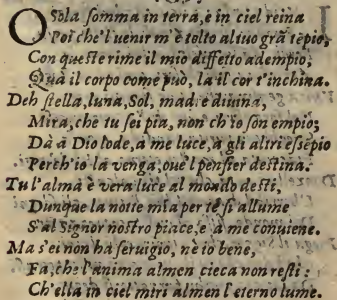 O Sola somma in terra, e in ciel reina
Poi che'l uenir m'è tolto al tuo grã tẽpio,
Con queste rime il mio diffetto adempio;
Quà il corpo come può, la il cor t'inchina.
Deh stella, luna, Sol, madre diuina,
Mira, che tu sei pia, non ch'io son empio;
Dà à Dio lode, a me luce, a gli altri essẽpio
Perch'io la venga, oue'l pensier destina.
Tu l'alma e vera luce al mondo desti,
Dunque la notte mia per te si allume
S'al Signor nostro piace, e à me conuiene.
Ma s'ei non ha seruigio, nè io bene,
Fa, che l'anima almen cieca non resti:
Ch'ella in ciel miri almen l'eterno lume.